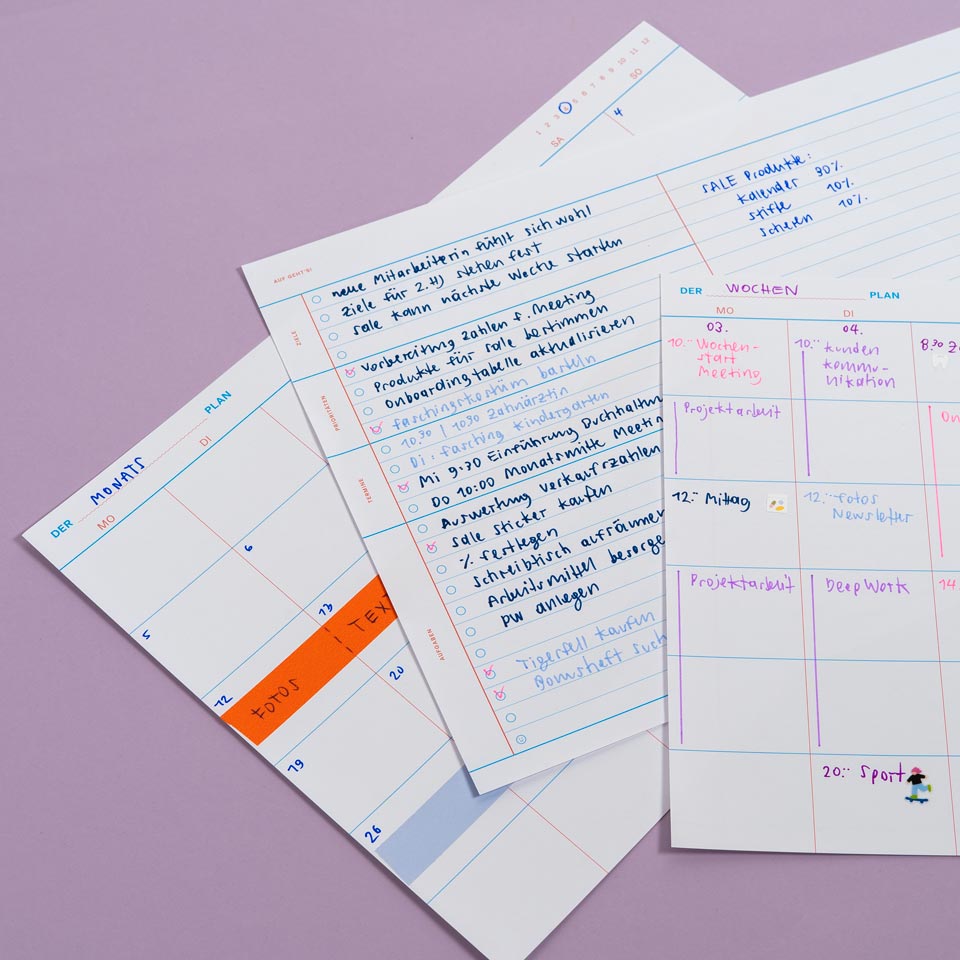 1 2 3 4 5 6 7 8 9 10 11 12
SA
SO
4
DER MONATS PLAN
MO
DI
5
6
12
13
FOTOS
TEX
19
20
26
AUF GEHT'S!
ZIELE
neue Mitarbeiterin fühlt sich wohl
Ziele für 2.HJ stehen fest
Sale kann nächste Woche starten
PRIORITÄTEN
Vorbereitung Zahlen f. Meeting
Produkte für Sale bestimmen
Onboardingtabelle aktualisieren
Faschingskostüm basteln
TERMINE
10.30 | 10 30 Zahnärztin
Di: Fasching Kindergarten
Mi 9:30 Einführung Buchhaltun
Do 10:00 Monatsmitte Meetin
AUFGABEN
Auswertung Verkaufszahlen
Sale Sticker kaufen
% festlegen
Schreibtisch aufräumen
Arbeitsmittel besorge
PW anlegen
Tigerfell kaufen
such
SALE Produkte:
Kalender 30%
Stifte 10%
Scheren 10%
DER WOCHEN PLAN
MO
DI
03.
04.
10.:: Wochen-
start
Meeting
10.:: Kunden
kommu-
nikation
8.30 Z
Projektarbeit
On
12.:: Mittag
12.:: Fotos
Newsletter
Projektarbeit
Deep Work
14.
20.:: Sport